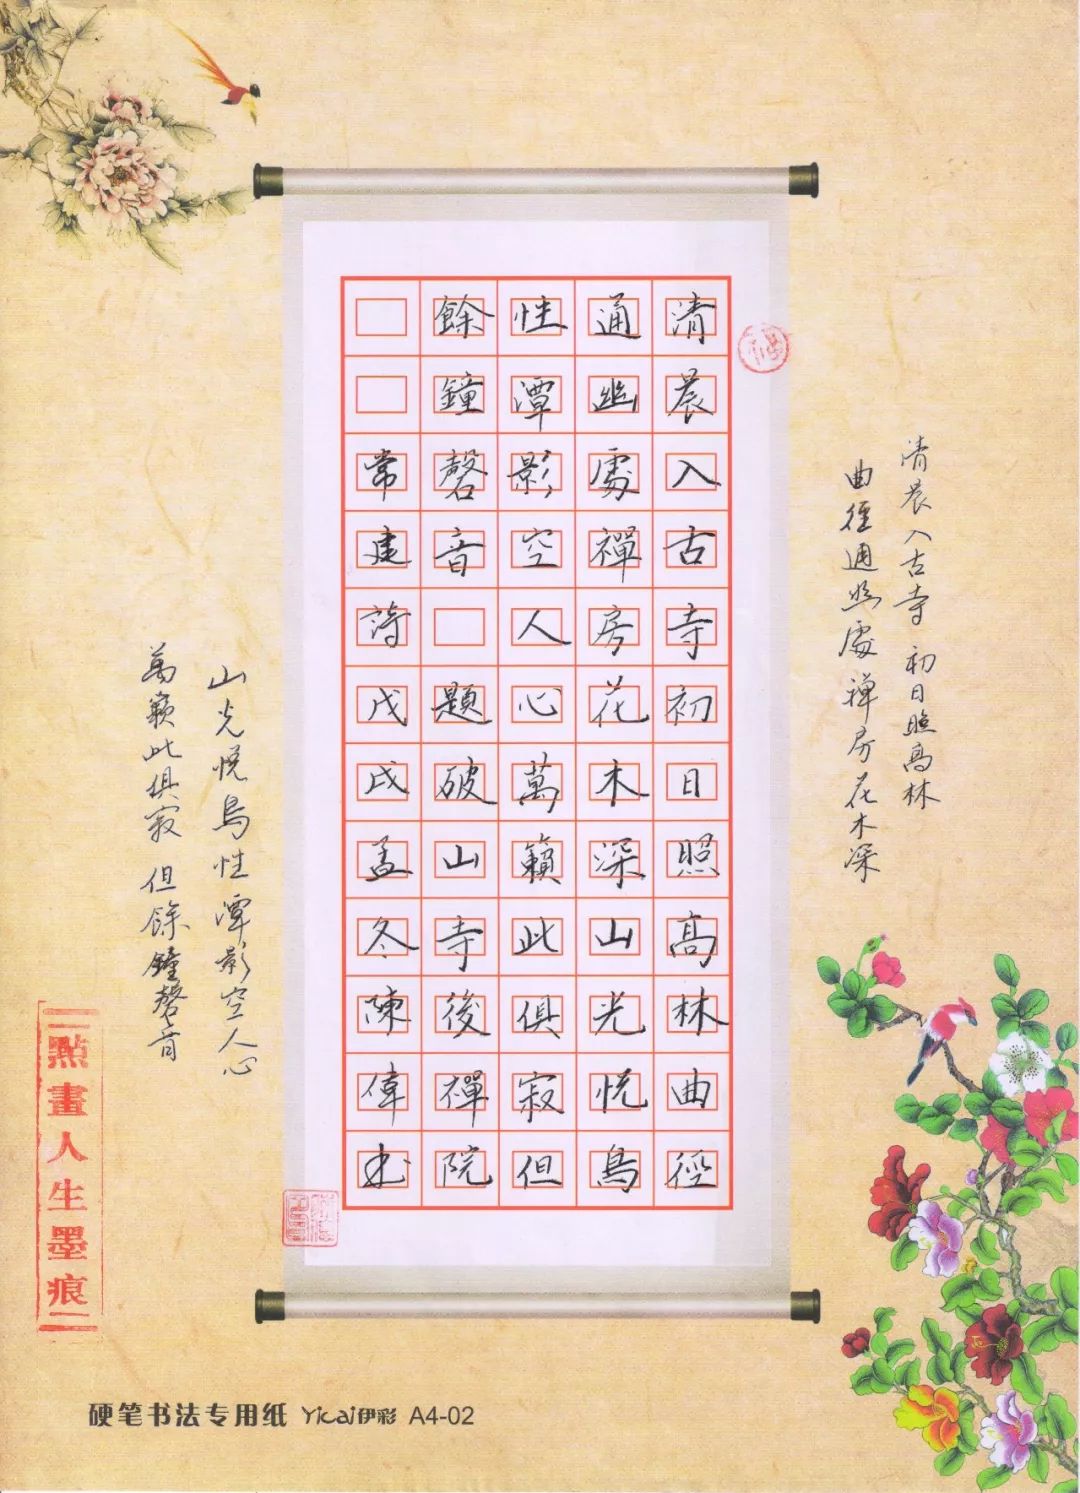 清晨入古寺 初日照高林
曲徑通幽處禪房花木深
清晨入古寺初日照高林曲徑
通幽處禪房花木深山光悦鳥
性潭影空人心萬籟此俱寂但
餘鐘磬音 題破山寺後禪院
常建詩戊戌孟冬陳偉书
山光悦鳥性潭影空人心
萬籟此俱寂 但餘鐘磬音
點畫人生墨痕
硬笔书法专用纸 Yicai伊彩 A4-02